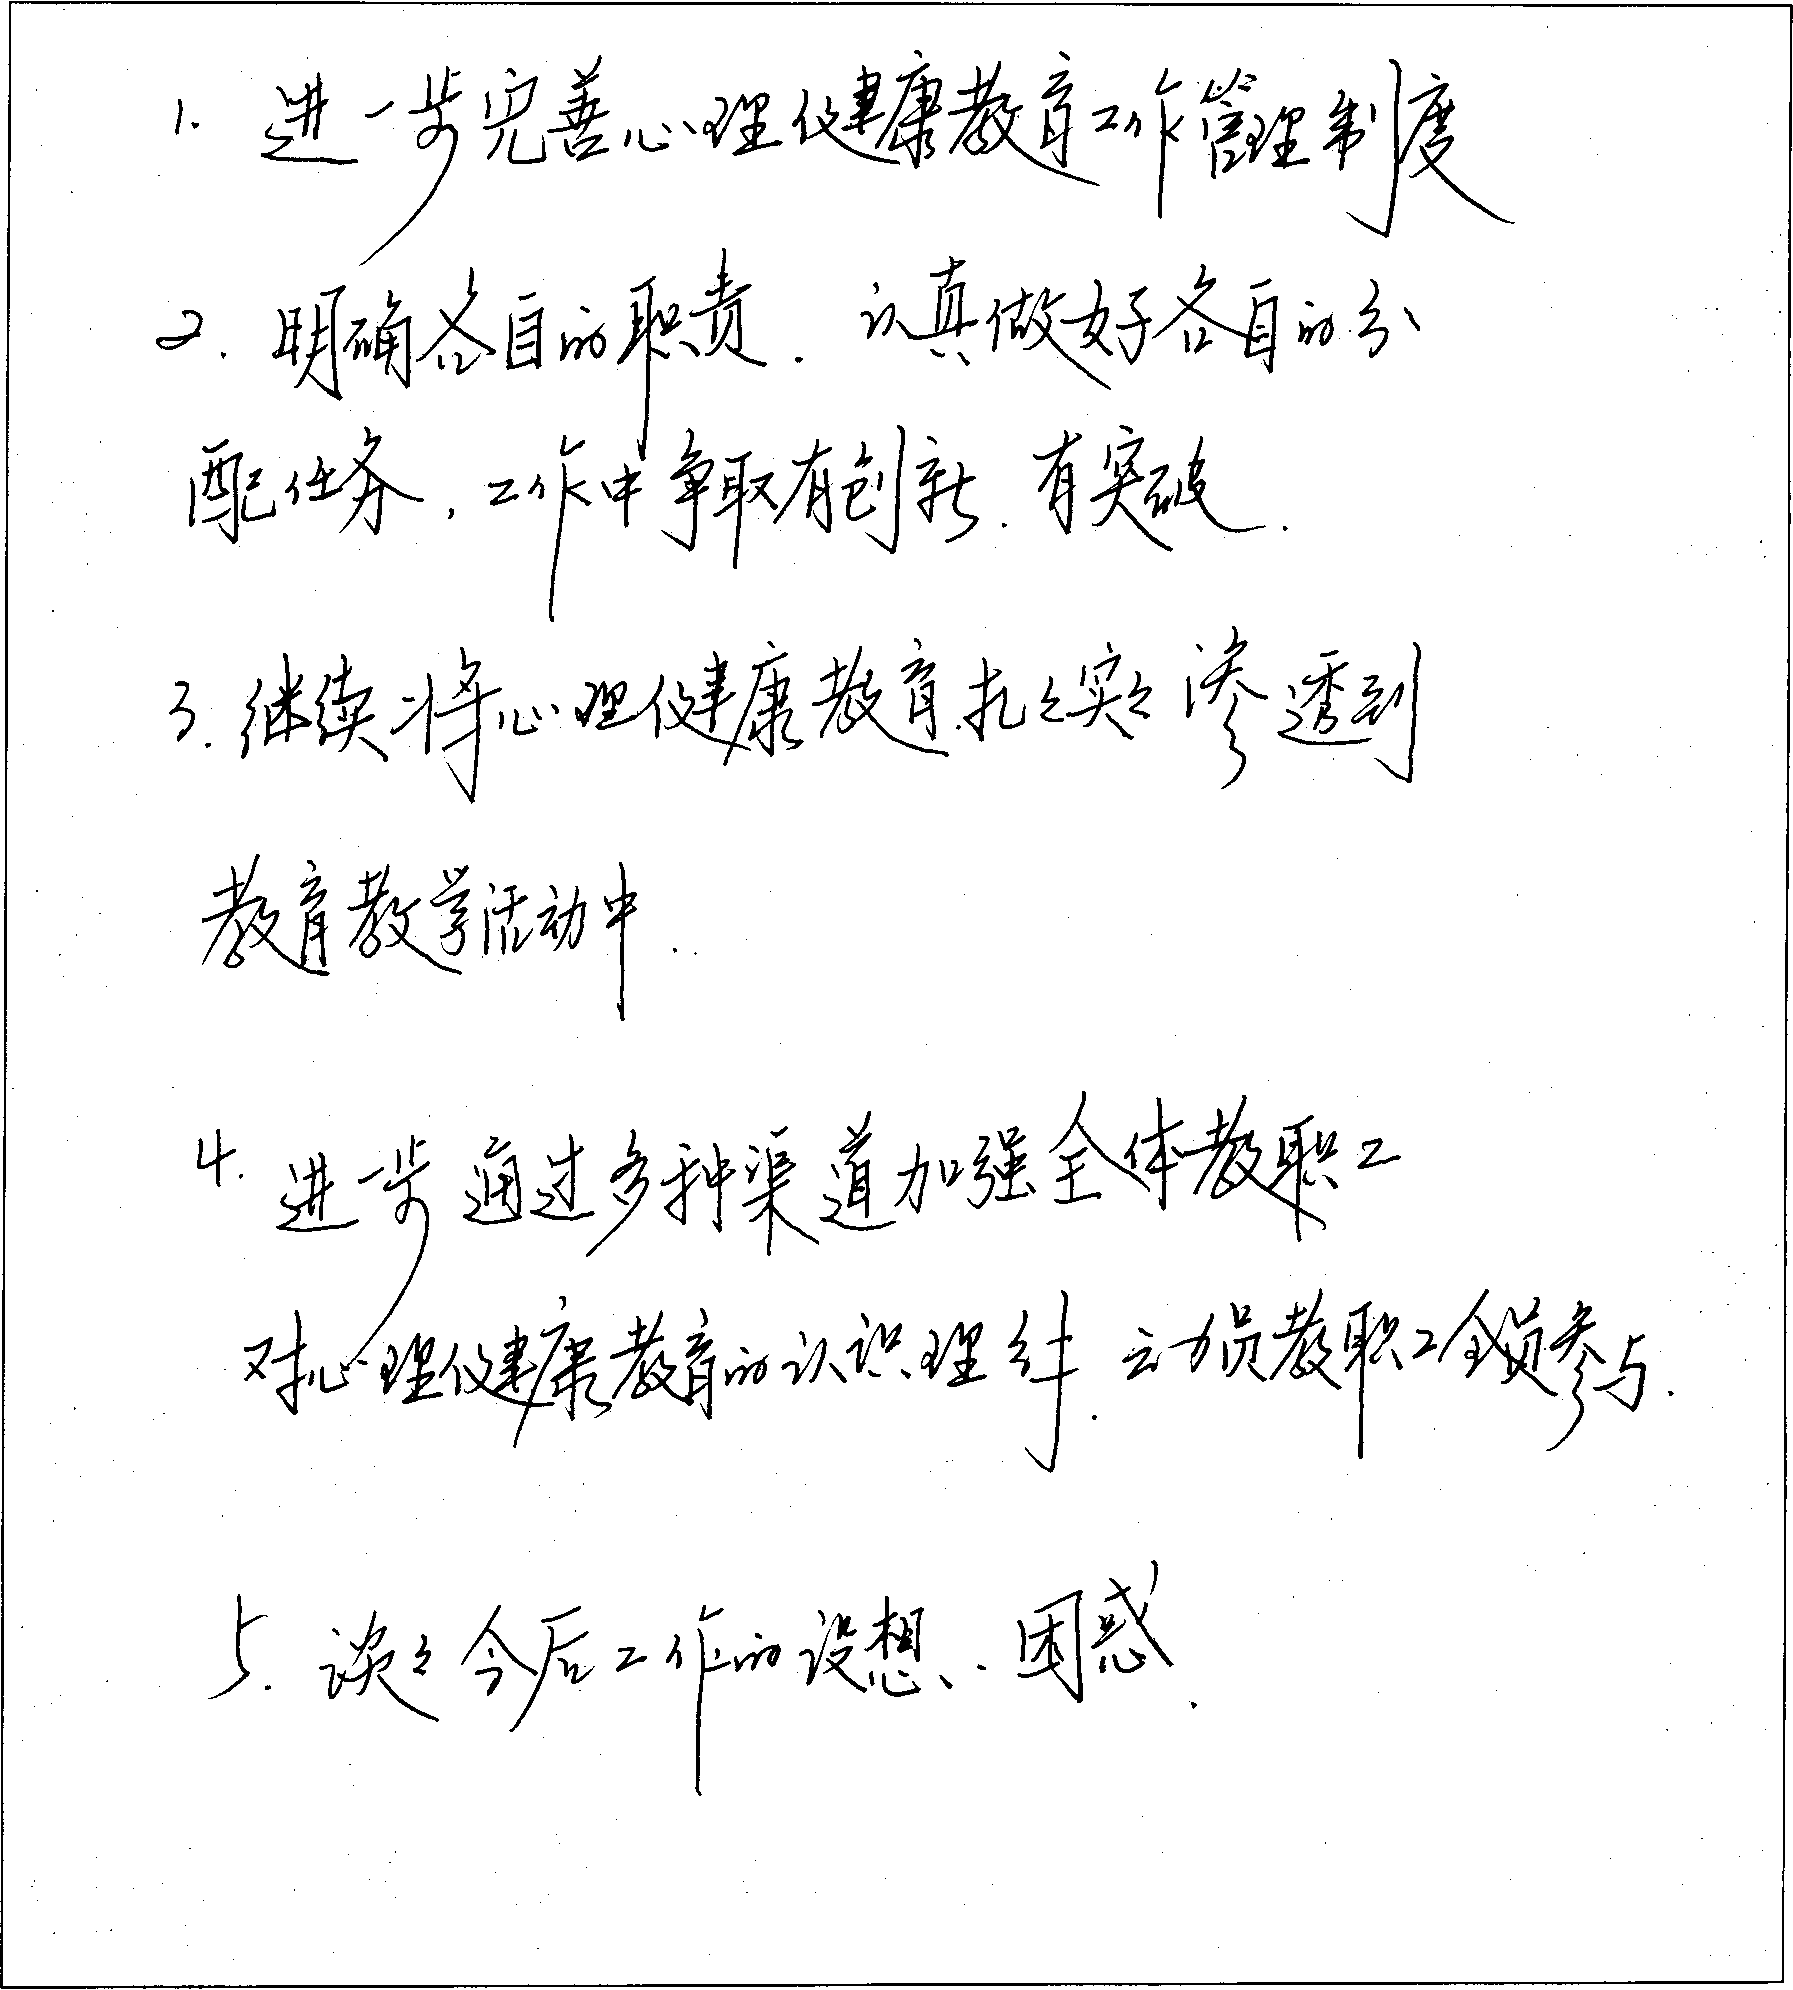 1. 进一步完善心理健康教育工作管理制度
2. 明确各自的职责. 认真做好各自的分
配任务, 工作中争取有创新. 有突破.
3. 继续将心理健康教育扎々实々渗透到
教育教学活动中.
4. 进一步通过多种渠道加强全体教职工
对心理健康教育的认识理解. 动员教职工全员参与.
5. 谈々今后工作的设想、困惑.